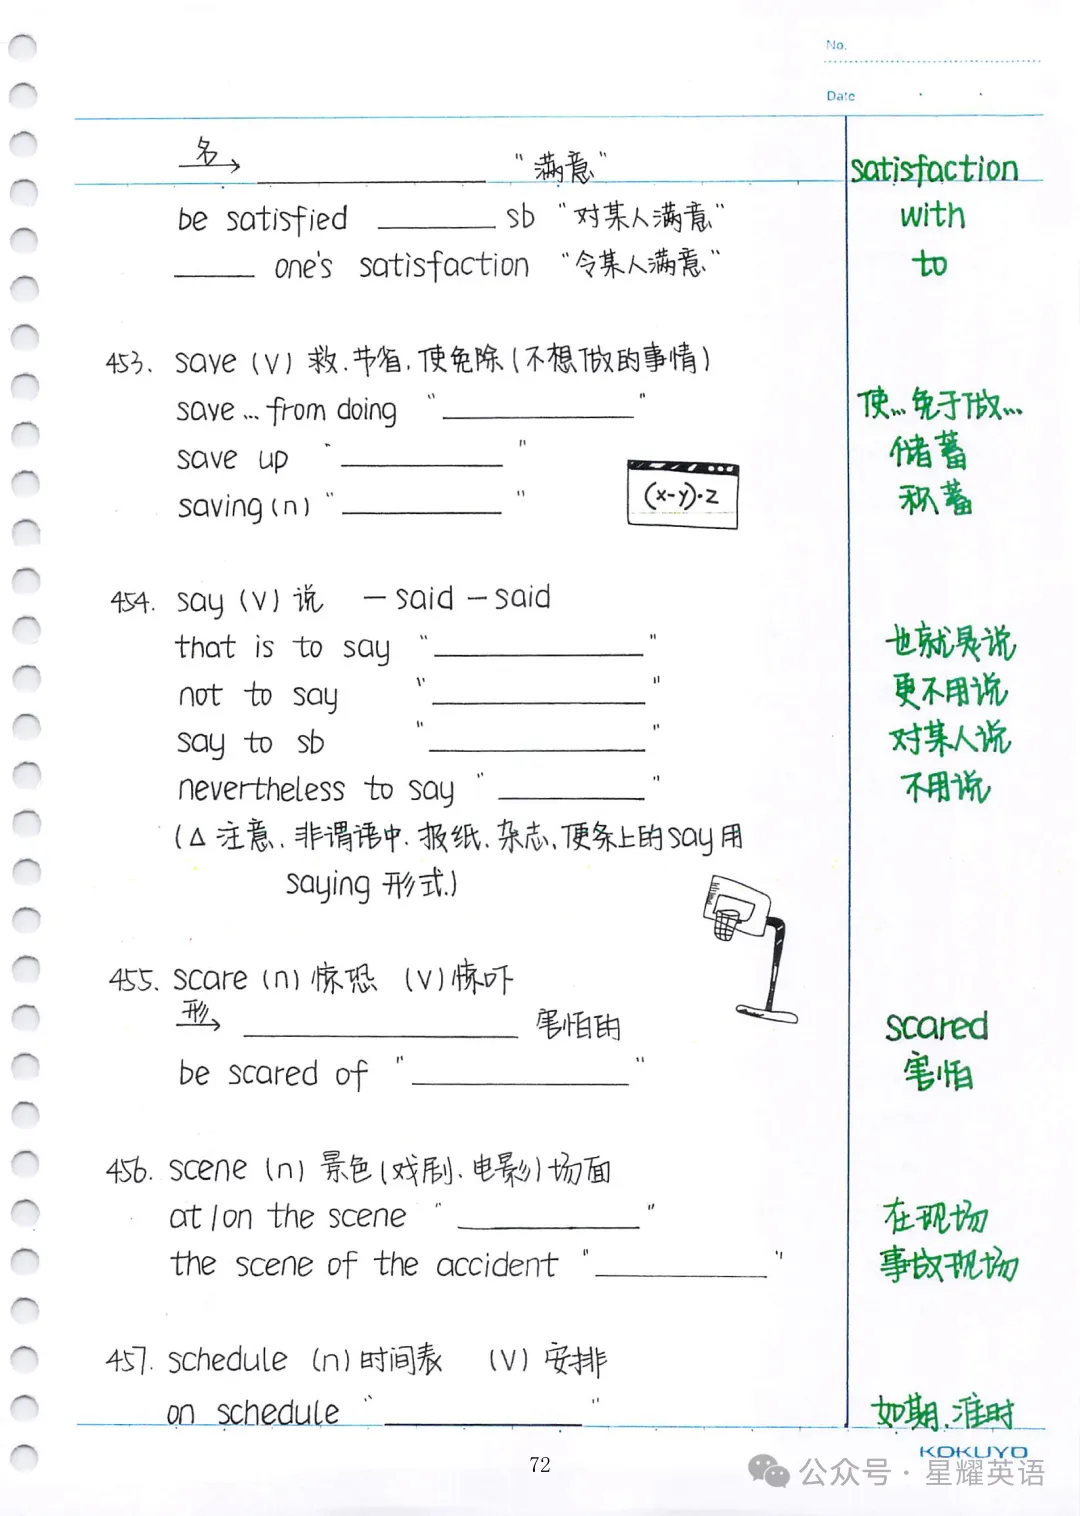 No.
Date
名→ ________ "满意" satisfaction
be satisfied ____ sb "对某人满意" with
____ one's satisfaction "令某人满意" to
453. save (v) 救.节省.使免除(不想做的事情)
save ... from doing "________" 使...免于做...
save up "________" 储蓄
saving(n) "________" 积蓄
(x-y)·z
454. say (v) 说 — said — said
that is to say "________" 也就是说
not to say "________" 更不用说
say to sb "________" 对某人说
nevertheless to say "________" 不用说
(Δ 注意.非谓语中.报纸.杂志.便条上的say用
saying 形式.)
455. scare (n) 惊恐 (v) 惊吓
形→ ________ 害怕的 scared
be scared of "________" 害怕
456. scene (n) 景色(戏剧.电影)场面
at/on the scene "________" 在现场
the scene of the accident "________" 事故现场
457. schedule (n) 时间表 (v) 安排
on schedule "________" 如期.准时
KOKUYO
72
公众号·星耀英语